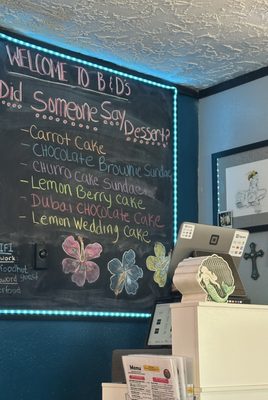 WELCOME TO B&D'S
Did Someone Say
Dessert?
- Carrot Cake
- CHOCOLATE Brownie Sundae
- Churro Cake Sundaes
- Lemon Berry Cake
- Dubai CHOCOLATE Cake
- Lemon Wedding Cake
Menu